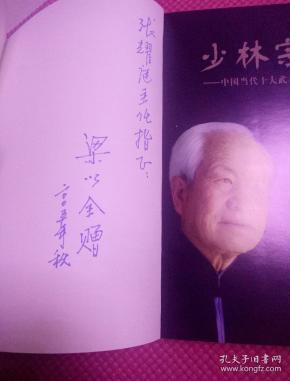 张耀庭主任指正：
梁以全赠
二〇〇五年秋
少林宗
——中国当代十大武
孔夫子旧书网